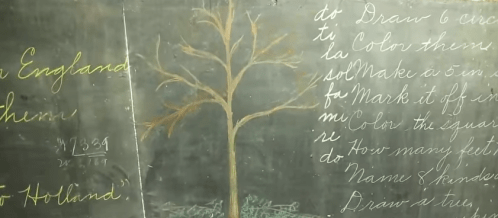 England
them
to Holland".
do
ti
la
sol
fa
mi
re
do
Draw 6 circ
Color them
Make a 5 in.
Mark it off in
Color the squar
How many feet
Name 8 kinds
Draw a tree